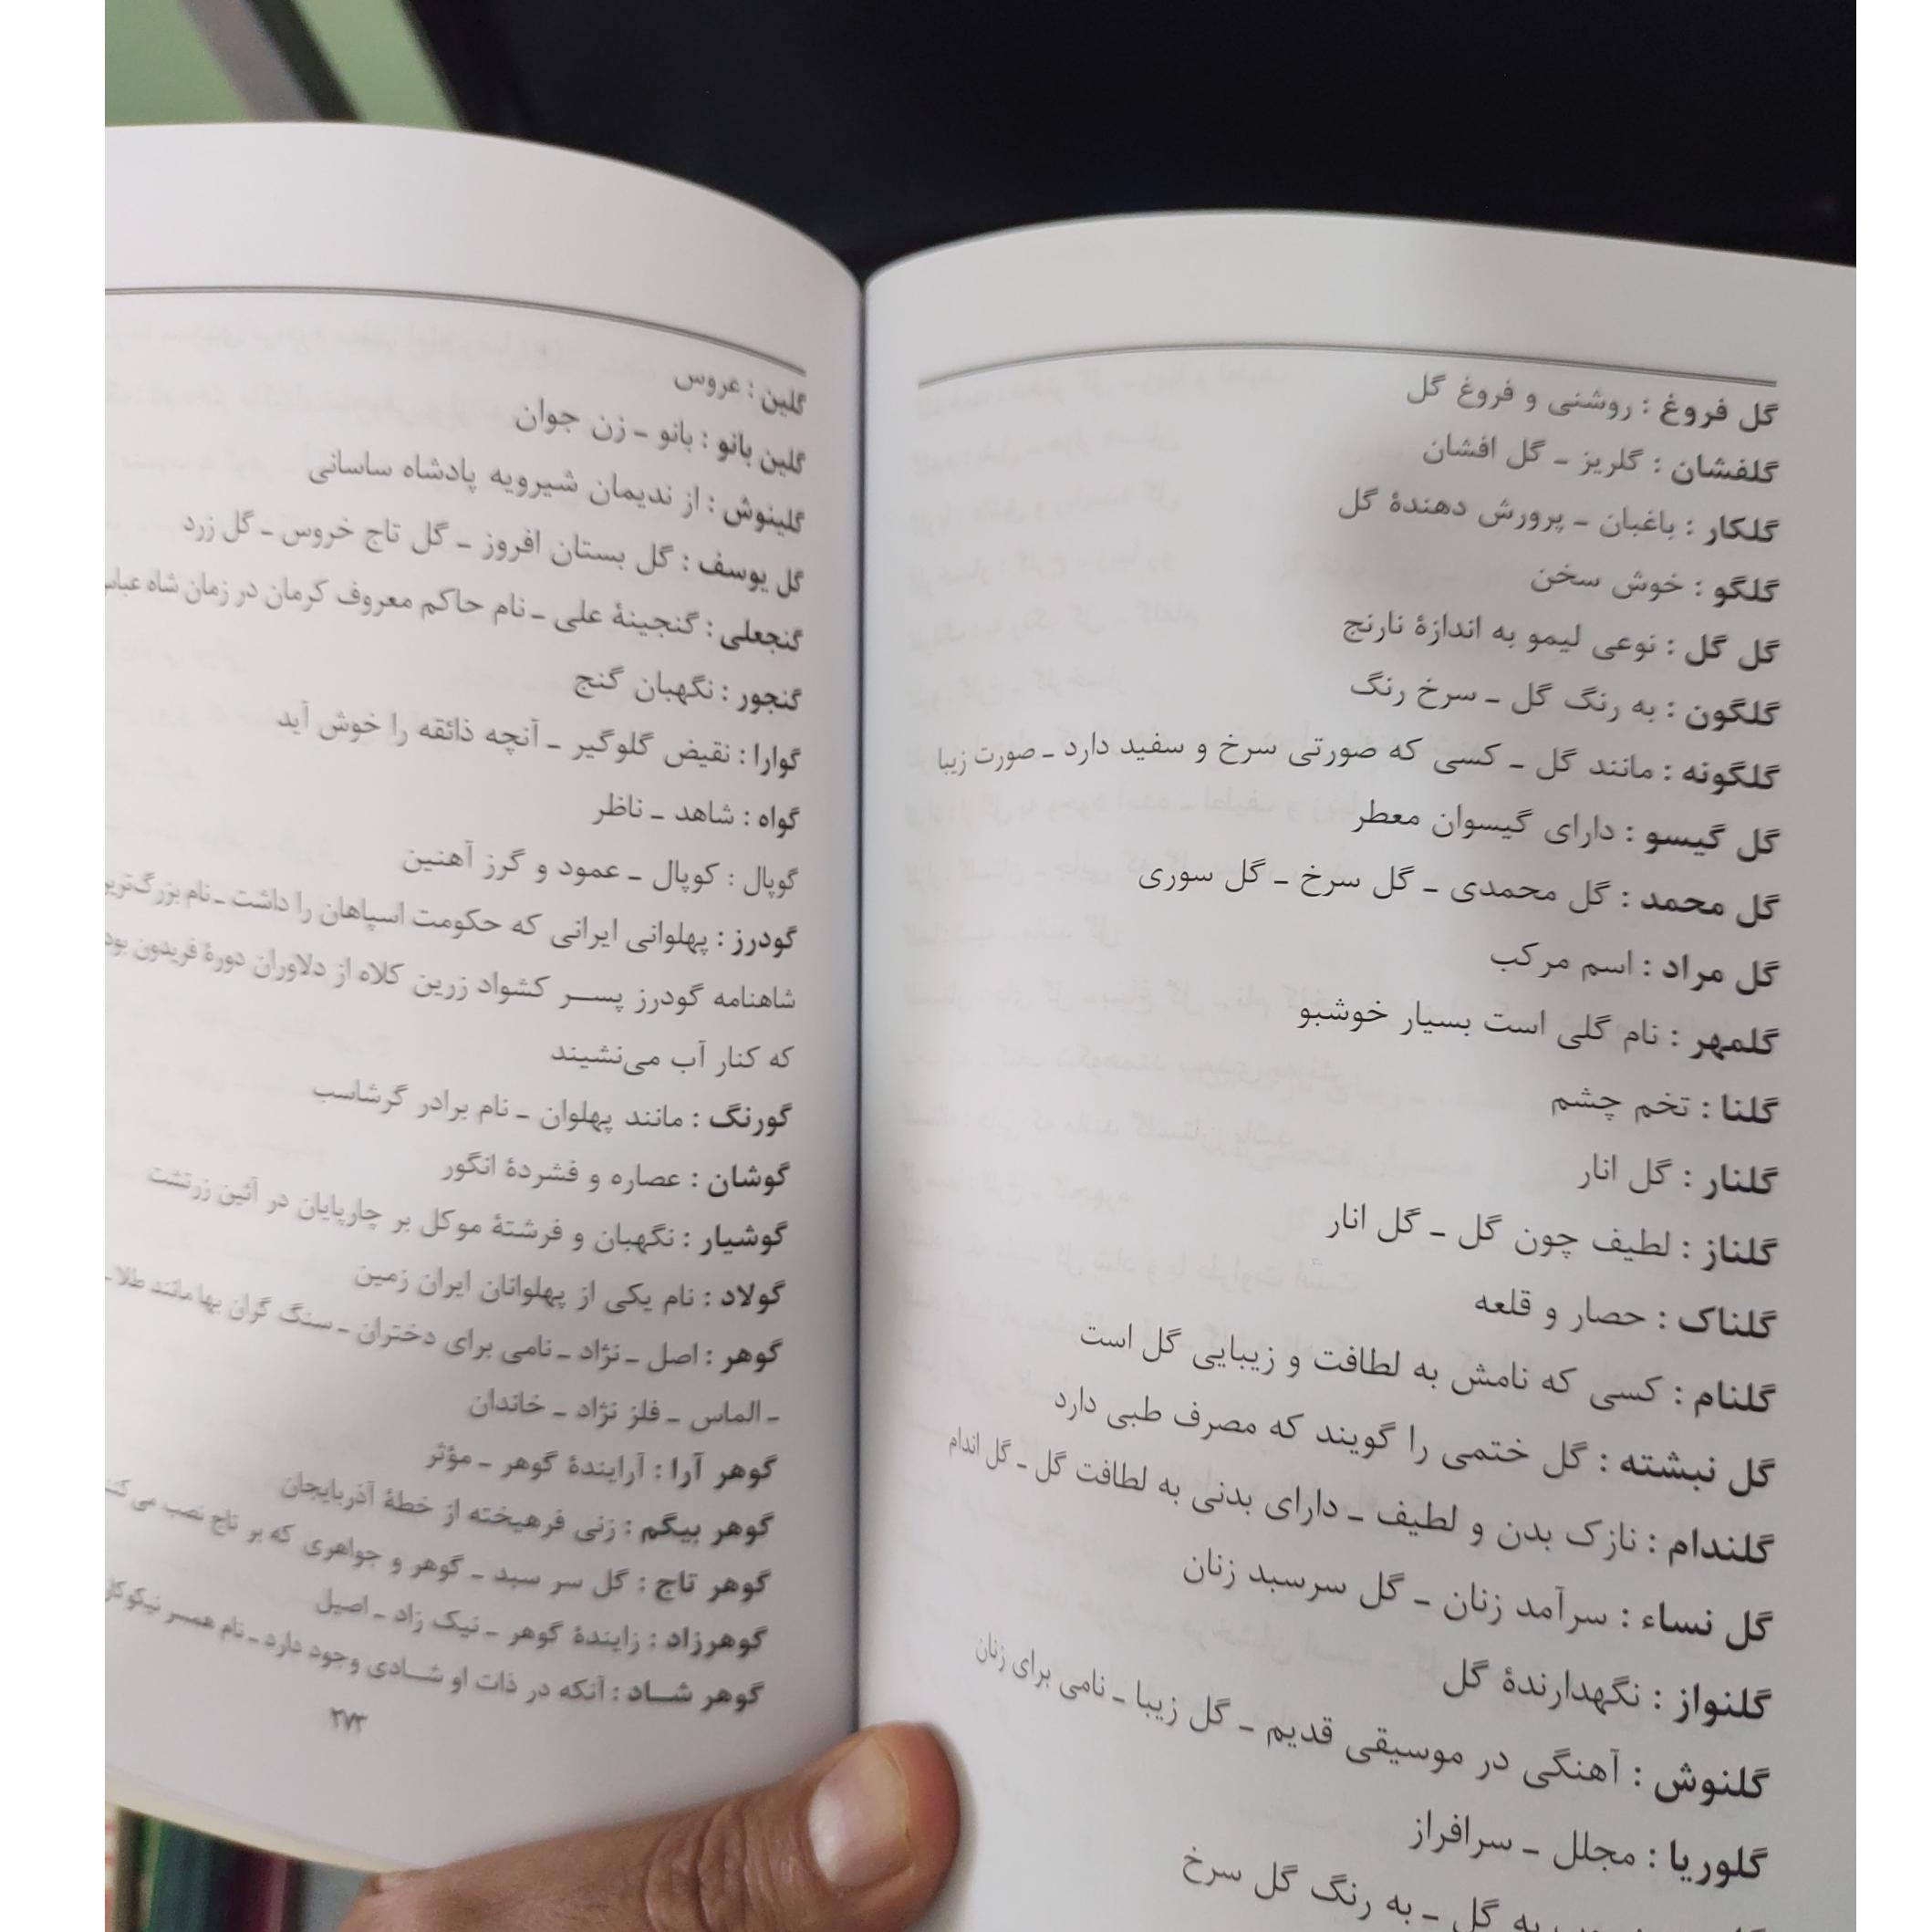 گل فروغ : روشنی و فروغ گل
گلفشان : گلریز ـ گل افشان
گلکار : باغبان ـ پرورش دهندۀ گل
گلگو : خوش سخن
گل گل : نوعی لیمو به اندازۀ نارنج
گلگون : به رنگ گل ـ سرخ رنگ
گلگونه : مانند گل ـ کسی که صورتی سرخ و سفید دارد ـ صورت زیبا
گل گیسو : دارای گیسوان معطر
گل محمد : گل محمدی ـ گل سرخ ـ گل سوری
گل مراد : اسم مرکب
گلمهر : نام گلی است بسیار خوشبو
گلنا : تخم چشم
گلنار : گل انار
گلناز : لطیف چون گل ـ گل انار
گلناک : حصار و قلعه
گلنام : کسی که نامش به لطافت و زیبایی گل است
گل نبشته : گل ختمی را گویند که مصرف طبی دارد
گلندام : نازک بدن و لطیف ـ دارای بدنی به لطافت گل ـ گل اندام
گل نساء : سرآمد زنان ـ گل سرسبد زنان
گلنواز : نگهدارندۀ گل
گلنوش : آهنگی در موسیقی قدیم ـ گل زیبا ـ نامی برای زنان
گلوریا : مجلل ـ سرافراز
به گل ـ به رنگ گل سرخ
گلین : عروس
گلین بانو : بانو ـ زن جوان
گلینوش : از ندیمان شیرویه پادشاه ساسانی
گل یوسف : گل بستان افروز ـ گل تاج خروس ـ گل زرد
گنجعلی : گنجینۀ علی ـ نام حاکم معروف کرمان در زمان شاه
گنجور : نگهبان گنج
گوارا : نقیض گلوگیر ـ آنچه ذائقه را خوش آید
گواه : شاهد ـ ناظر
گوپال : کوپال ـ عمود و گرز آهنین
گودرز : پهلوانی ایرانی که حکومت اسپاهان را داشت ـ نام
شاهنامه گودرز پسر کشواد زرین کلاه از دلاوران دورۀ فریدون
که کنار آب می‌نشیند
گورنگ : مانند پهلوان ـ نام برادر گرشاسب
گوشان : عصاره و فشردۀ انگور
گوشیار : نگهبان و فرشتۀ موکل بر چارپایان در آئین زرتشت
گولاد : نام یکی از پهلوانان ایران زمین
گوهر : اصل ـ نژاد ـ نامی برای دختران ـ سنگ گران بها مانند طلا ـ
ـ الماس ـ فلز نژاد ـ خاندان
گوهر آرا : آرایندۀ گوهر ـ مؤثر
گوهر بیگم : زنی فرهیخته از خطۀ آذربایجان
گوهر تاج : گل سر سبد ـ گوهر و جواهری که بر تاج نصب می
گوهرزاد : زایندۀ گوهر ـ نیک زاد ـ اصیل
گوهر شاد : آنکه در ذات او شادی وجود دارد ـ نام همسر
۲۷۳